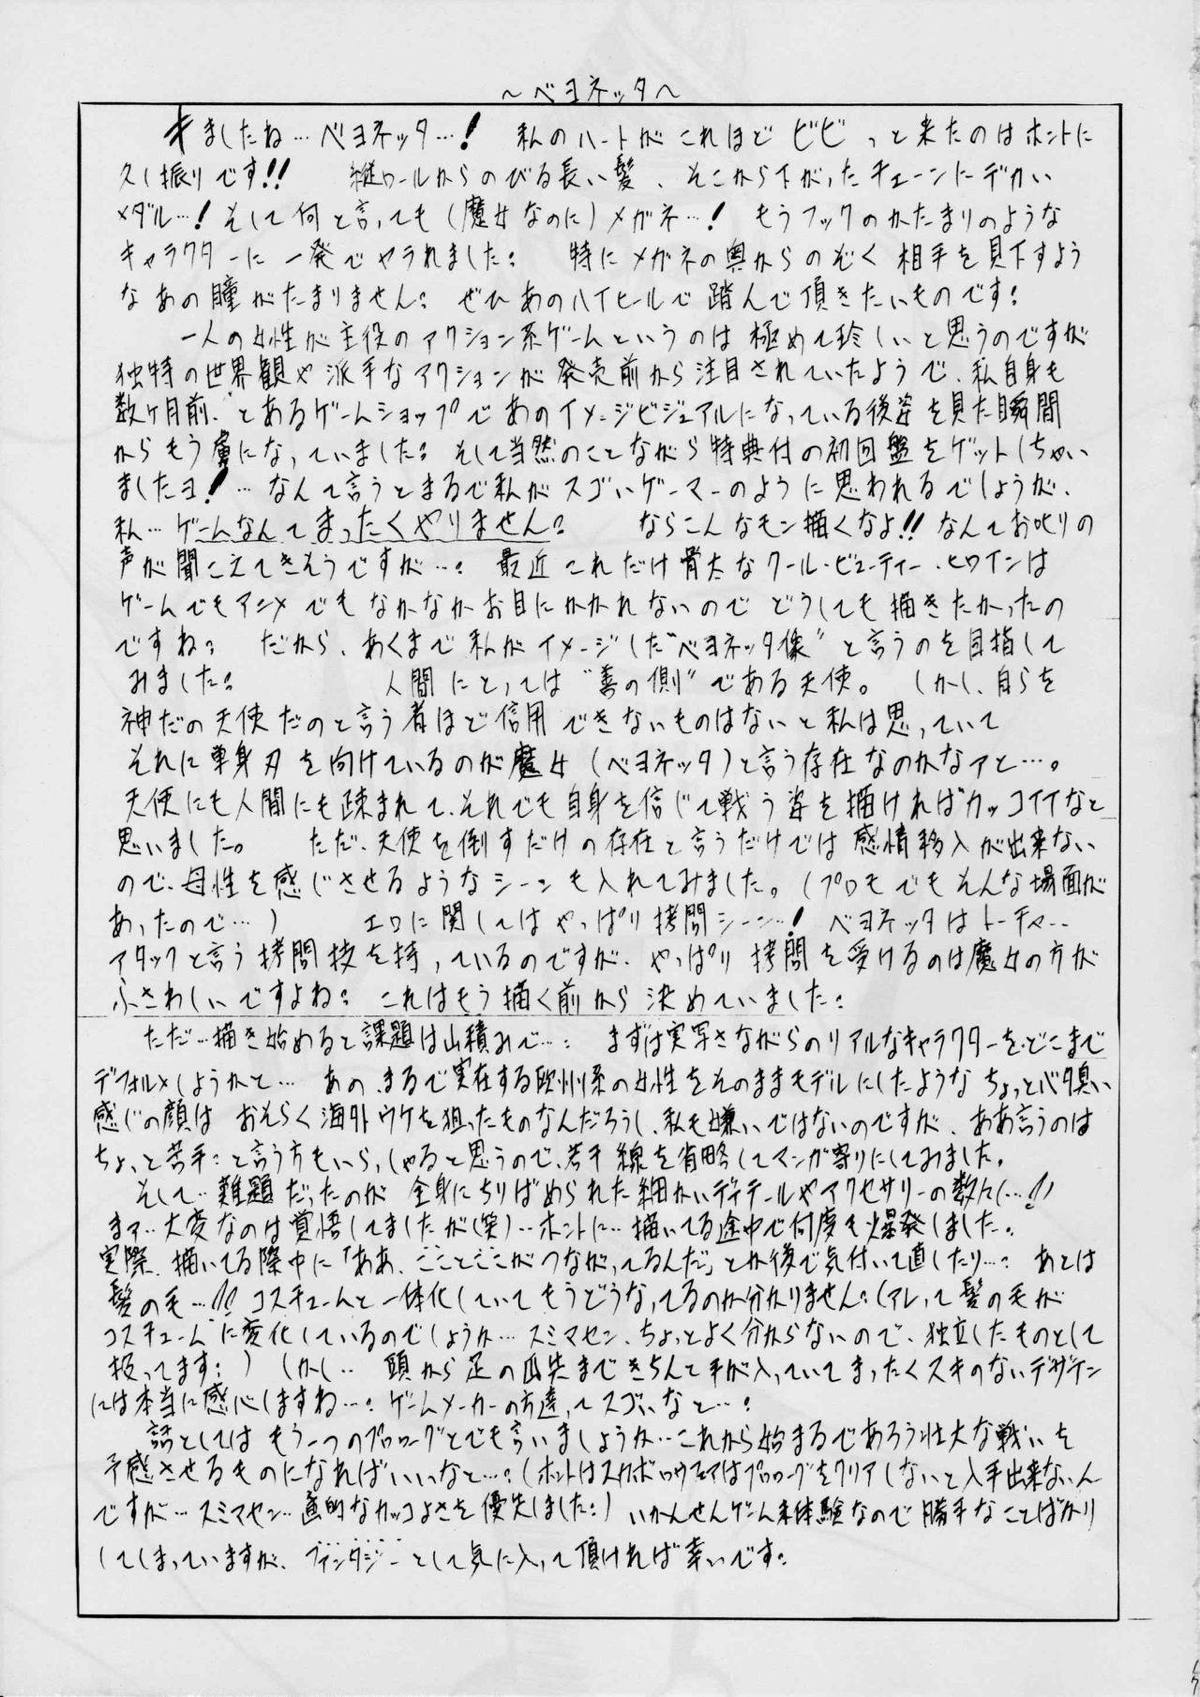 ～ベヨネッタ～
キましたね…ベヨネッタ…! 私のハートがこれほど ビビ っと来たのはホントに
久し振りです!! 縦ロールからのびる長い髪、そこから下がったチェーンにデカい
メダル…! そして何と言っても(魔女なのに)メガネ…! もうフックのかたまりのような
キャラクターに一発でヤラれました: 特にメガネの奥からのぞく 相手を見下すよう
なあの瞳がたまりません: ぜひあのハイヒールで踏んで頂きたいものです:
一人の女性が主役のアクション系ゲームというのは極めて珍しいと思うのですが
独特の世界観や派手なアクションが発売前から注目されていたようで、私自身も
数ヶ月前、とあるゲームショップであのイメージビジュアルになっている後姿を見た瞬間
からもう虜になっていました: そして当然のことながら特典付の初回盤をゲットしちゃい
ましたヨ! …なんて言うとまるで私がスゴいゲーマーのように思われるでしょうが、
私…ゲームなんてまったくやりません: ならこんなモン描くなよ!! なんてお叱りの
声が聞こえてきそうですが…: 最近これだけ骨太なクール・ビューティー・ヒロインは
ゲームでもアニメでもなかなかお目にかかれないので どうしても描きたかったの
ですね: だから、あくまで私がイメージした"ベヨネッタ像"と言うのを目指して
みました: 人間にとっては"善の側"である天使。 しかし、自らを
神だの天使だのと言う者ほど信用できないものはないと私は思っていて
それに単身刃を向けているのが魔女(ベヨネッタ)と言う存在なのかなァと…。
天使にも人間にも疎まれて、それでも自身を信じて戦う姿を描ければカッコイイなと
思いました。 ただ、天使を倒すだけの存在と言うだけでは感情移入が出来ない
ので、母性を感じさせるようなシーンも入れてみました。(プロモでもそんな場面が
あったので…) エロに関してはやっぱり拷問シーン…! ベヨネッタはトーチャー
アタックと言う拷問技を持っているのですが、やっぱり 拷問を受けるのは魔女の方が
ふさわしいですよね: これはもう描く前から決めていました:
ただ…描き始めると課題は山積みで…: まずは実写さながらのリアルなキャラクターをどこまで
デフォルメしようかと… あの、まるで実在する欧州系の女性をそのままモデルにしたような ちょっとバタ臭い
感じの顔は おそらく海外ウケを狙ったものなんだろうし、私も嫌いではないのですが、ああ言うのは
ちょっと苦手:と言う方もいらっしゃると思うので、若干線を省略してマンガ寄りにしてみました。
そして…難題だったのが 全身にちりばめられた細かいディテールやアクセサリーの数々…!!
まァ…大変なのは覚悟してましたが(笑)…ホントに…描いてる途中で何度も爆発しました。
実際、描いてる際中に「ああ、こことここがつながってるんだ」とか後で気付いて直したり…: あとは
髪の毛…!! コスチュームと一体化していてもうどうなってるのか分かりません:(アレって髪の毛が
コスチュームに変化しているのでしょうか…スミマセン、ちょっとよく分からないので、独立したものとして
扱ってます:) しかし… 頭から足の爪先まできちんと手が入っていてまったくスキのないデザイン
には本当に感心しますね…: ゲームメーカーの方達ってスゴいなと…:
話としては もう一つのプロローグとでも言いましょうか…これから始まるであろう壮大な戦いを
予感させるものになればいいなと…:(ホントはスカボロウフェアはプロローグをクリアしないと入手出来ないん
ですが…スミマセン…画的なカッコよさを優先しました:) いかんせんゲーム未体験なので勝手なことばかり
してしまっていますが、ファンタジーとして気に入って頂ければ幸いです: